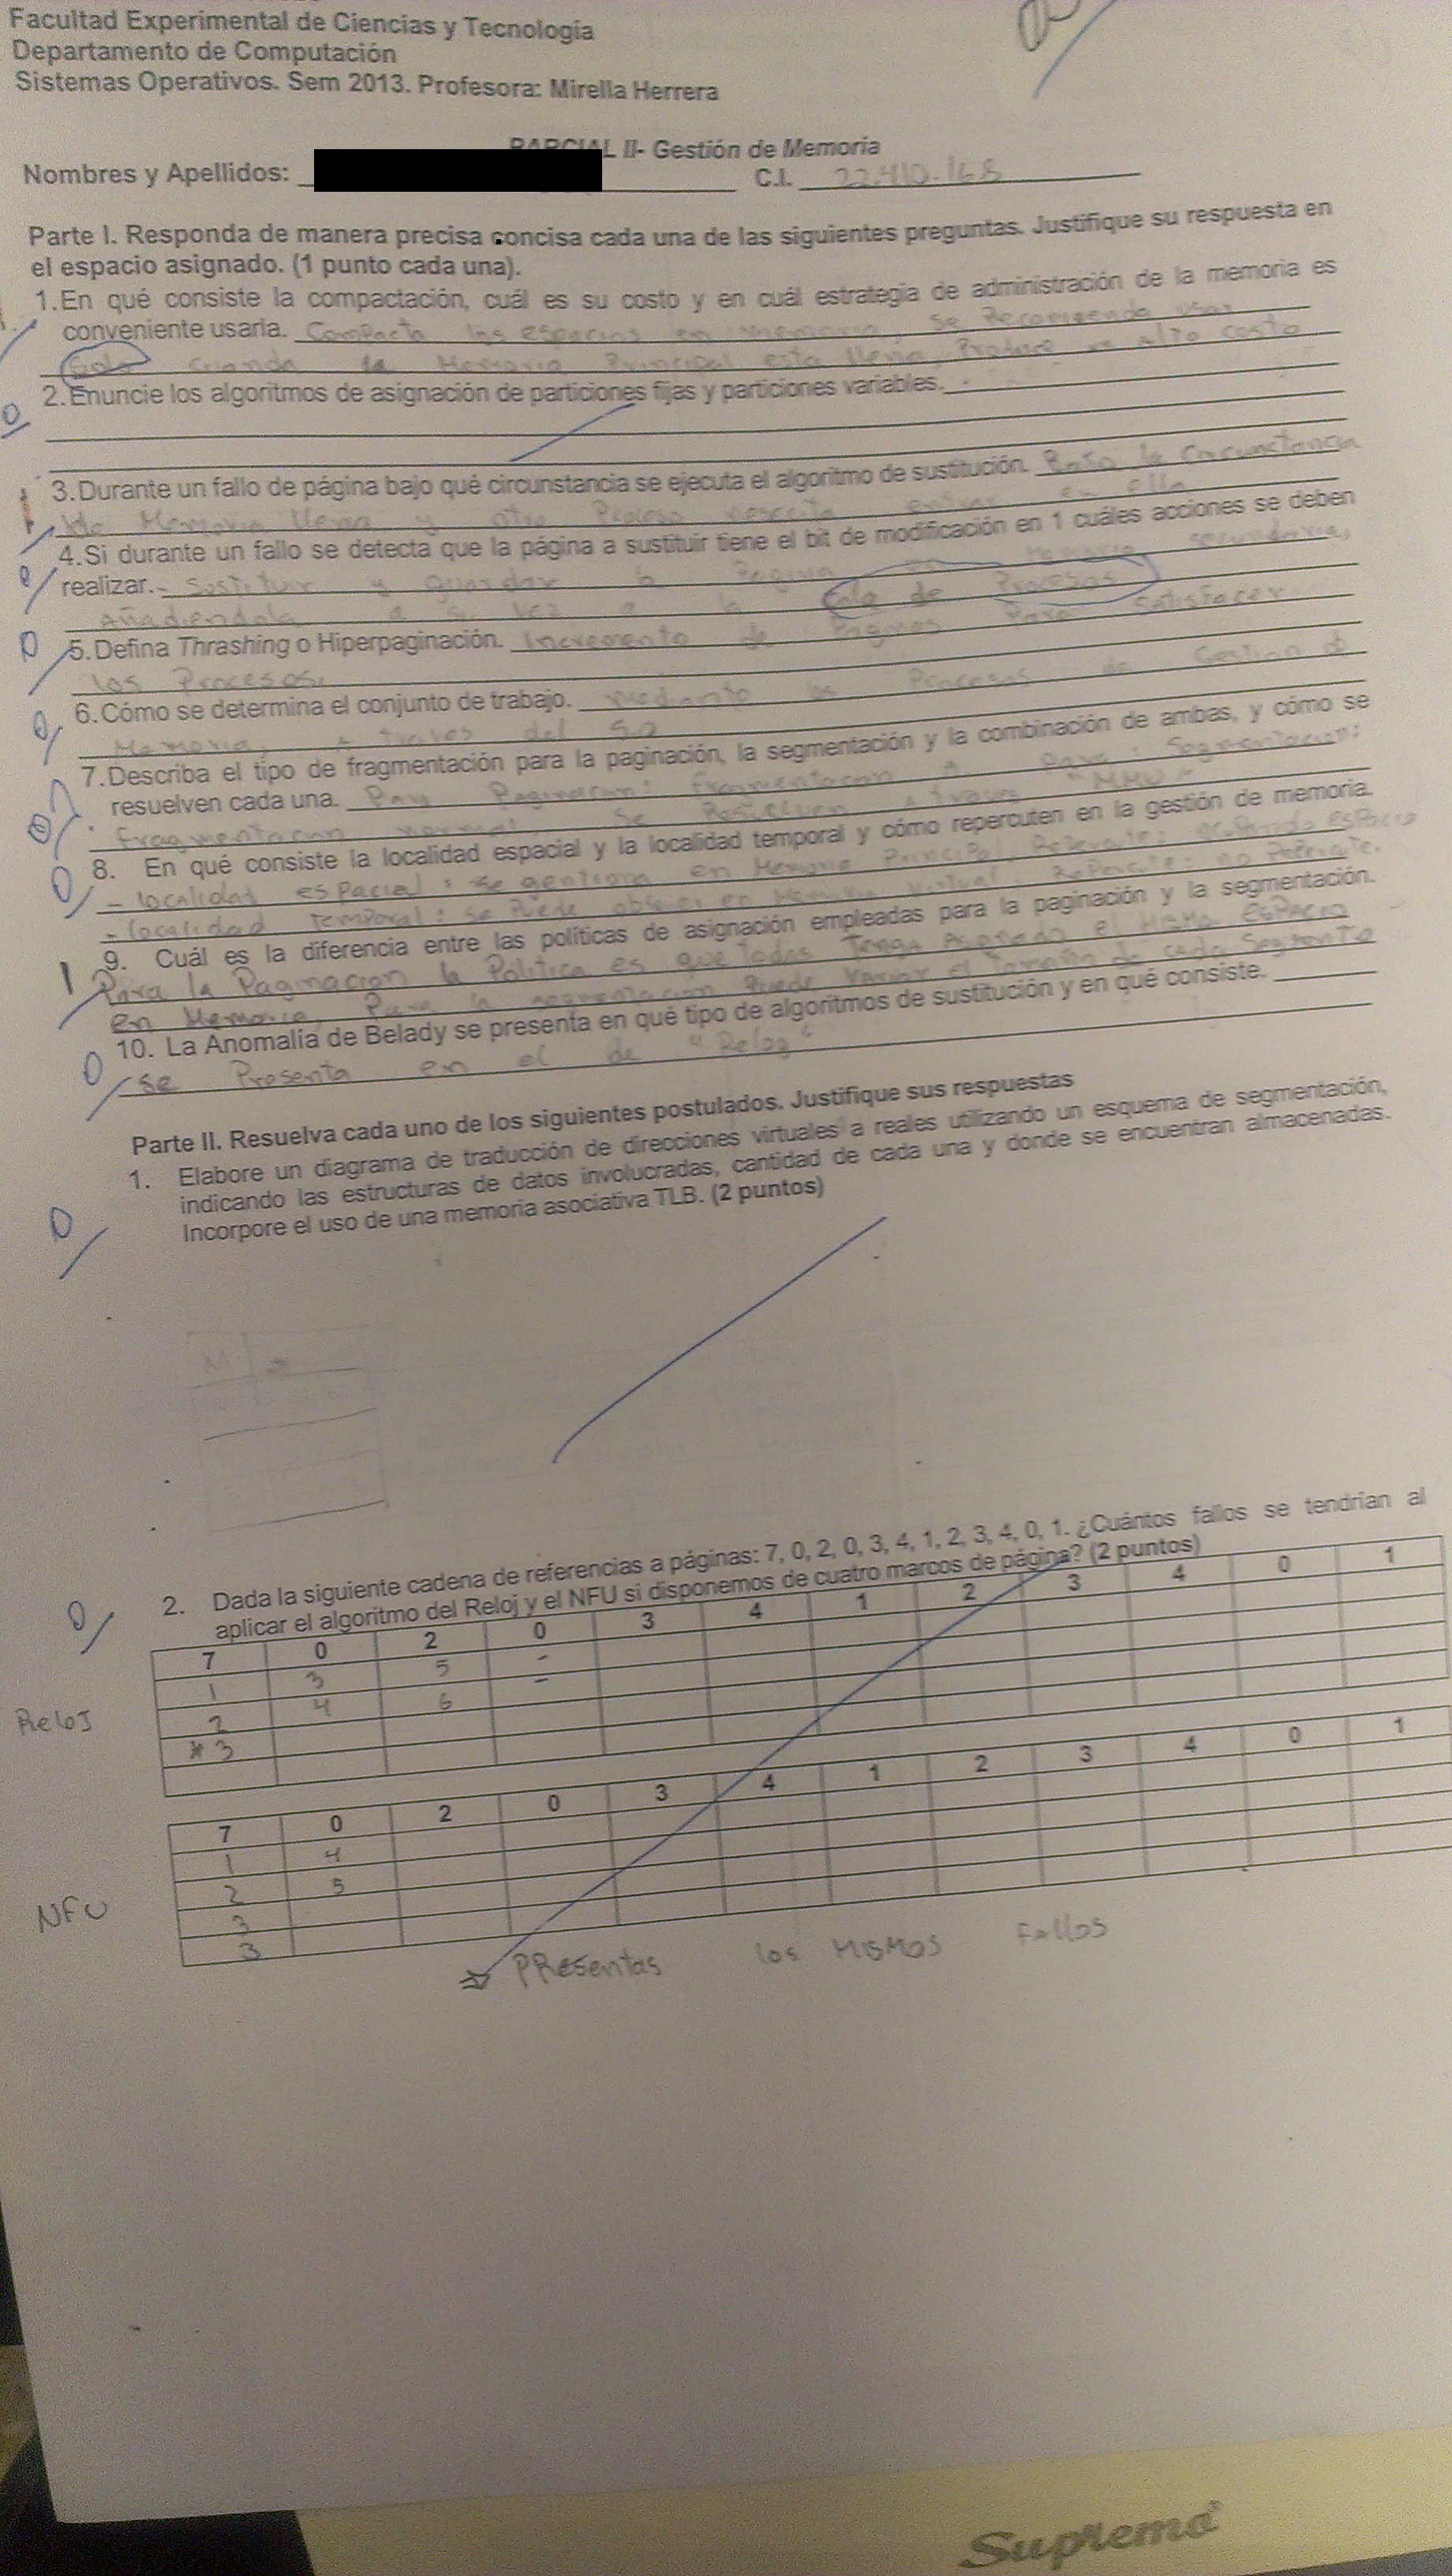 Facultad Experimental de Ciencias y Tecnología
Departamento de Computación
Sistemas Operativos. Sem 2013. Profesora: Mirella Herrera
PARCIAL II- Gestión de Memoria
Nombres y Apellidos: C.I. 22.410.168
Parte I. Responda de manera precisa concisa cada una de las siguientes preguntas. Justifique su respuesta en
el espacio asignado. (1 punto cada una).
1. En qué consiste la compactación, cuál es su costo y en cuál estrategia de administración de la memoria es
conveniente usarla. Compacta los espacios en memoria, se Recomienda usar
Solo cuando la Memoria Principal esta llena, Produce un Alto costo
2. Enuncie los algoritmos de asignación de particiones fijas y particiones variables.
0
3. Durante un fallo de página bajo qué circunstancia se ejecuta el algoritmo de sustitución. Bajo la Circunstancia
de Memoria llena y otro Proceso necesita entrar en ella
4. Si durante un fallo se detecta que la página a sustituir tiene el bit de modificación en 1 cuáles acciones se deben
realizar. Sustituir y guardar la Pagina en Memoria secundaria,
0
Añadiendola a su vez a la Cola de Procesos
5. Defina Thrashing o Hiperpaginación. Incremento de Paginas Para satisfacer
0
los Procesos.
6. Cómo se determina el conjunto de trabajo. mediante los Procesos de Gestion de
0
Memoria, A traves del S.O
7. Describa el tipo de fragmentación para la paginación, la segmentación y la combinación de ambas, y cómo se
resuelven cada una. Para Paginacion: Fragmentacion Para: Segmentacion:
0
Fragmentacion normal se Resuelven A traves "MMU"
8. En qué consiste la localidad espacial y la localidad temporal y cómo repercuten en la gestión de memoria.
0
- localidad espacial: se gentiona en Memoria Principal. Repercute: ocupando espacio
- localidad Temporal: se Puede obtener en Memoria virtual. Repercute: no Repercute.
9. Cuál es la diferencia entre las políticas de asignación empleadas para la paginación y la segmentación.
1
Para la Paginacion la Politica es que todas Tenga Asignado el Mismo espacio
en Memoria, Para la segmentacion Puede variar el Tamaño de cada Segmento
10. La Anomalía de Belady se presenta en qué tipo de algoritmos de sustitución y en qué consiste.
0
se Presenta en el de "Reloj"
Parte II. Resuelva cada uno de los siguientes postulados. Justifique sus respuestas
1. Elabore un diagrama de traducción de direcciones virtuales a reales utilizando un esquema de segmentación,
indicando las estructuras de datos involucradas, cantidad de cada una y donde se encuentran almacenadas.
Incorpore el uso de una memoria asociativa TLB. (2 puntos)
0
M
2. Dada la siguiente cadena de referencias a páginas: 7, 0, 2, 0, 3, 4, 1, 2, 3, 4, 0, 1. ¿Cuántos fallos se tendrían al
aplicar el algoritmo del Reloj y el NFU si disponemos de cuatro marcos de página? (2 puntos)
0
7 0 2 0 3 4 1 2 3 4 0 1
1 3 5 -
2 4 6 -
* 3
Reloj
7 0 2 0 3 4 1 2 3 4 0 1
1 4
2 5
3
3
NFU
PResentas los MISMOS Fallos
Supremo